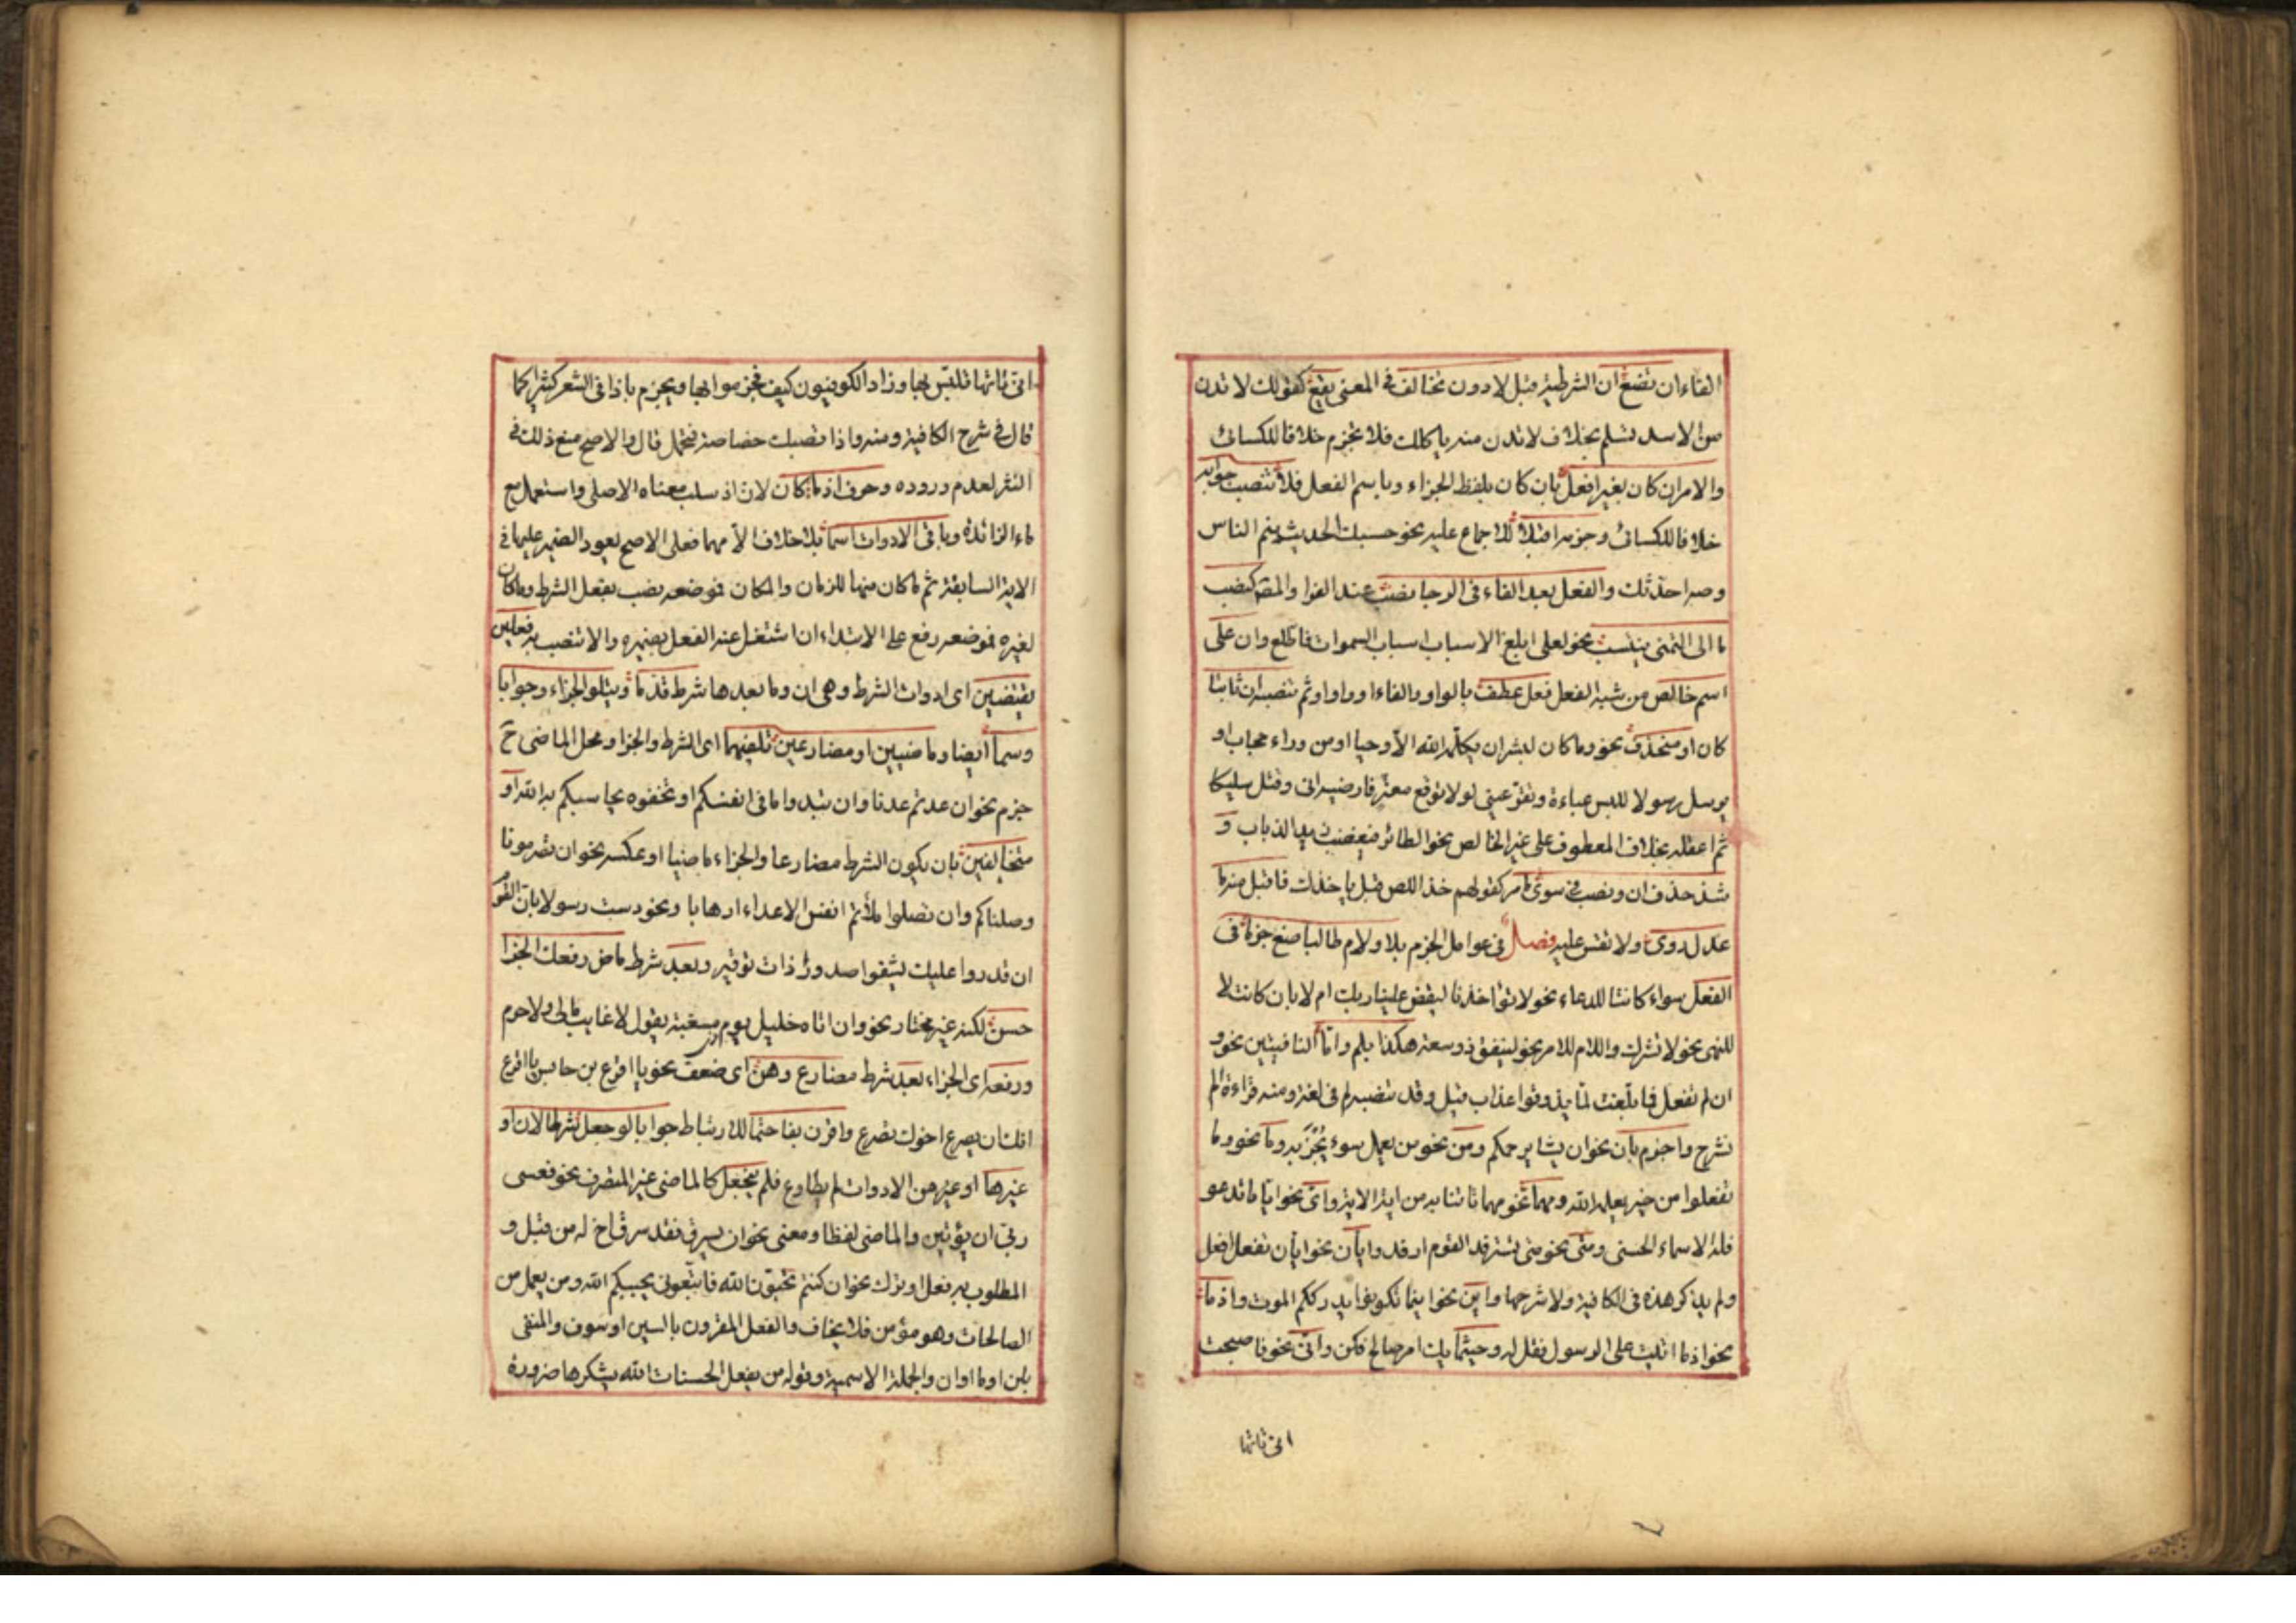 الفاء ان تضع ان الشرطية قبل لا دون تخالف في المعنى يقع كقولك لا تدن
من الاسد تسلم بخلاف لا تدن منه ياكلك فلا تجزم خلافا للكسائى
والامر ان كان بغير افعل بان كان بلفظ الخبر او باسم الفعل فلا تنصب جوابه
خلافا للكسائى وجزمه اقبلا للاجماع عليه نحو حسبك الحديث ينم الناس
وصه احدثك والفعل بعد الفاء فى الرجا نصب عند الفرا والمص كنصب
ما الى التمنى ينتسب نحو لعلى ابلغ الاسباب اسباب السموات فاطلع وان على
اسم خالص من شبه الفعل فعل عطف بالواو والفاء او واو اوثم تنصبه ان ثابتا
كان او منحذف نحو وما كان لبشر ان يكلمه الله الا وحيا او من وراء حجاب او
يرسل رسولا للبس عباءة وتقر عينى لولا توقع معتر فارضيه انى وقتل سليكا
ثم اعقله بخلاف المعطوف على غير الخالص نحو الطائر فيغضب زيد الذباب و
شذ حذف ان ونصب فى سوى ما مر كقولهم خذ اللص قبل ياخذك فاقبل منه ما
عدل روى ولا تقس عليه فصل فى عوامل الجزم بلا ولام طالبا ضع جزما فى
الفعل سواء كانتا للدعاء نحو لا تؤاخذنا ليقض علينا ربك ام لا بان كانت لا
للنهى نحو لا تشرك واللام للامر نحو لينفق ذو سعة هكذا بلم ولما النافيتين نحو و
ان لم تفعل فما بلغت لما يذوقوا عذاب قيل وقد تنصب لم فى لغة ومنه قراءة الم
نشرح واجزم بان نحو ان يشا يرحمكم ومن نحو من يعمل سوءا يجز به وما نحو وما
تفعلوا من خير يعلمه الله ومهما نحو مهما تاتنا به من اية الاية واى نحو ايا ما تدعو
فله الاسماء الحسنى ومتى نحو متى يسترفد القوم ارفد وايان نحو ايان تفعل افعل
ولم يذكر هذه فى الكافية ولا شرحها واين نحو اينما تكونوا يدرككم الموت واذما
نحو اذما اتيت على الرسول فقل له وحيثما يك امر صالح فكن وانى نحو فاصبحت
انى تاتها
انى تاتها تلتبس بها وزاد الكوفيون كيف فجزموا بها ويجزم باذا فى الشعر كثيرا كما
قال فى شرح الكافية ومنه واذا تصبك خصاصة فتحمل قال والاصح منع ذلك فى
النثر لعدم وروده وحرف اذما كان لان اذ سلب معناه الاصلى واستعمل مع
ماء الزائدة وباقى الادوات اسما بلا خلاف الا مهما فعلى الاصح لعود الضمير عليها فى
الاية السابقة ثم ما كان منها للزمان والمكان فموضعه نصب بفعل الشرط وما كان
لغيره فموضعه رفع على الابتداء ان اشتغل عنه الفعل بضميره والا نتصب به فعلين
يقتضين اى ادوات الشرط وهى ان وما بعدها شرط قدما ويتلو الجزاء وجوابا
وسما ايضا وماضيين او مضارعين تلفيهما اى الشرط والجزا ومحل الماضى ح
جزم نحو ان عدتم عدنا وان تبدوا ما فى انفسكم او تخفوه يحاسبكم به الله او
متخالفين بان يكون الشرط مضارعا والجزاء ماضيا او عكسه نحو ان تصرمونا
وصلناكم وان تصلوا ملأتم انفس الاعداء ارهابا ونحو دست رسولا بان القوم
ان قدروا عليك يشفوا صدورا ذات توغير وبعد شرط ماض رفعك الجزا
حسن لكنه غير مختار نحو وان اتاه خليل يوم مسغبة يقول لا غايب مالى ولا حرم
ورفعه اى الجزاء بعد شرط مضارع وهن اى ضعف نحو يا اقرع بن حابس يا اقرع
انك ان يصرع اخوك تصرع واقرن بفا حتما للارتباط جوابا لو جعل شرطا لان او
غيرها او غير من الادوات لم يطاوع فلم ينجعل كالماضى غير المتصرف نحو فعسى
ربى ان يؤتين والماضى لفظا ومعنى نحو ان يسرق فقد سرق اخ له من قبل و
المطلوب به فعل او ترك نحو ان كنتم تحبون الله فاتبعونى يحببكم الله ومن يعمل من
الصالحات وهو مؤمن فلا يخاف والفعل المقرون بالسين او سوف والمنفى
بلن او ما او ان والجملة الاسمية وقوله من يفعل الحسنات الله يشكرها ضرورة